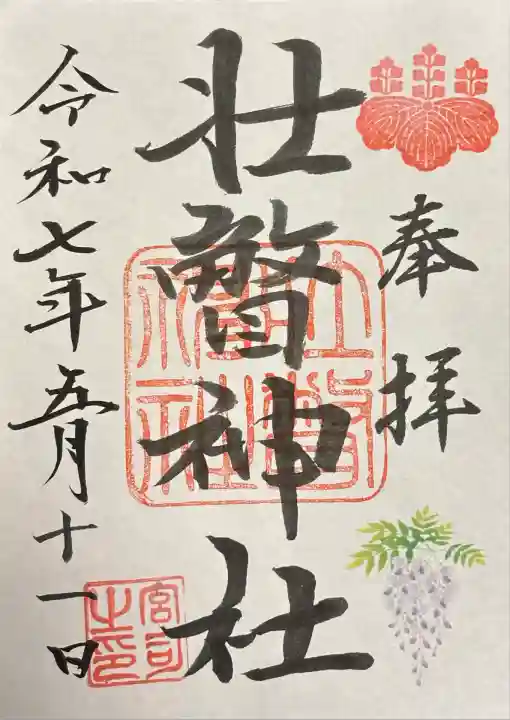 奉拝
壮瞥神社
壮瞥
神社
令和七年五月十一日
宮司
之印